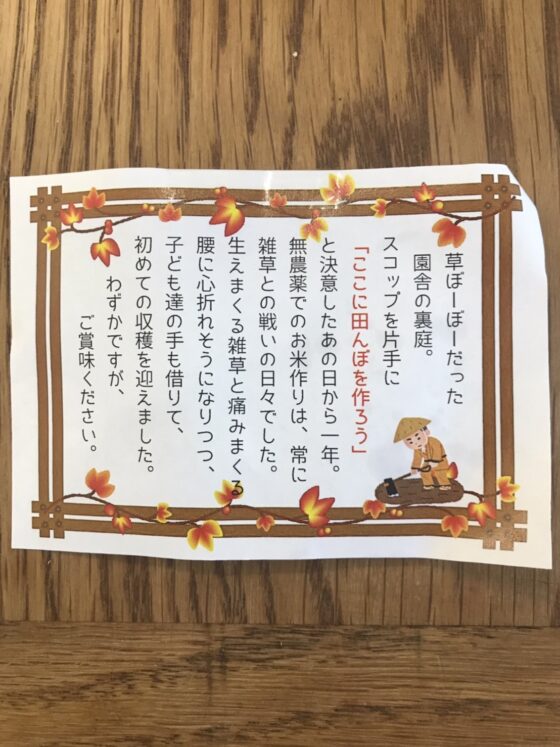 草ぼーぼーだった
園舎の裏庭。
スコップを片手に
「ここに田んぼを作ろう」
と決意したあの日から一年。
無農薬でのお米作りは、常に
雑草との戦いの日々でした。
生えまくる雑草と痛みまくる
腰に心折れそうになりつつ、
子ども達の手も借りて、
初めての収穫を迎えました。
わずかですが、
ご賞味ください。